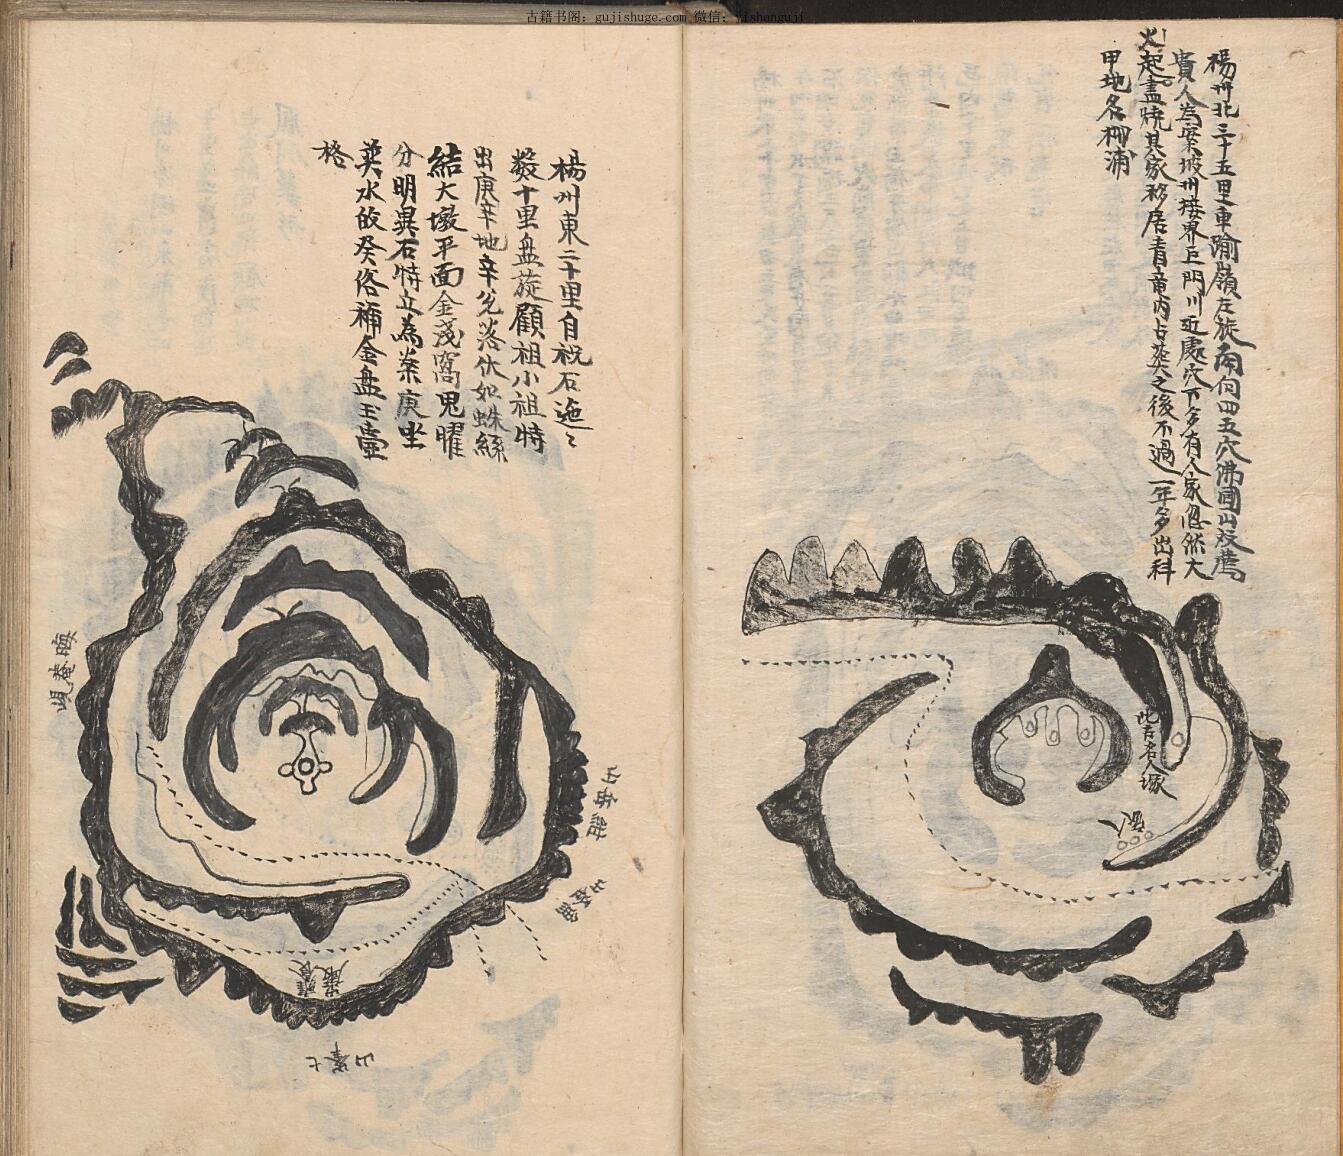 古籍书阁：gujishuge.com 微信：yishanguji
楊州北三十五里車踰嶺左旋南向四五穴佛國山
貴人為案坡州接界巨門川近處穴下多有人家忽然大
火起盡燒其家移居青龍內占葬之後不過一年多出科
甲地名柳浦
此古名人塚
人
楊州東二十里自祝石迤〻
數十里盘旋顧祖小祖特
出庚辛地辛兌落伏如蛛絲
結大墩平面金淺窩鬼曜
分明異石特立為案庚坐
巽水的癸俗稱金盘玉壺
格
晦菴峴
山
七峯山